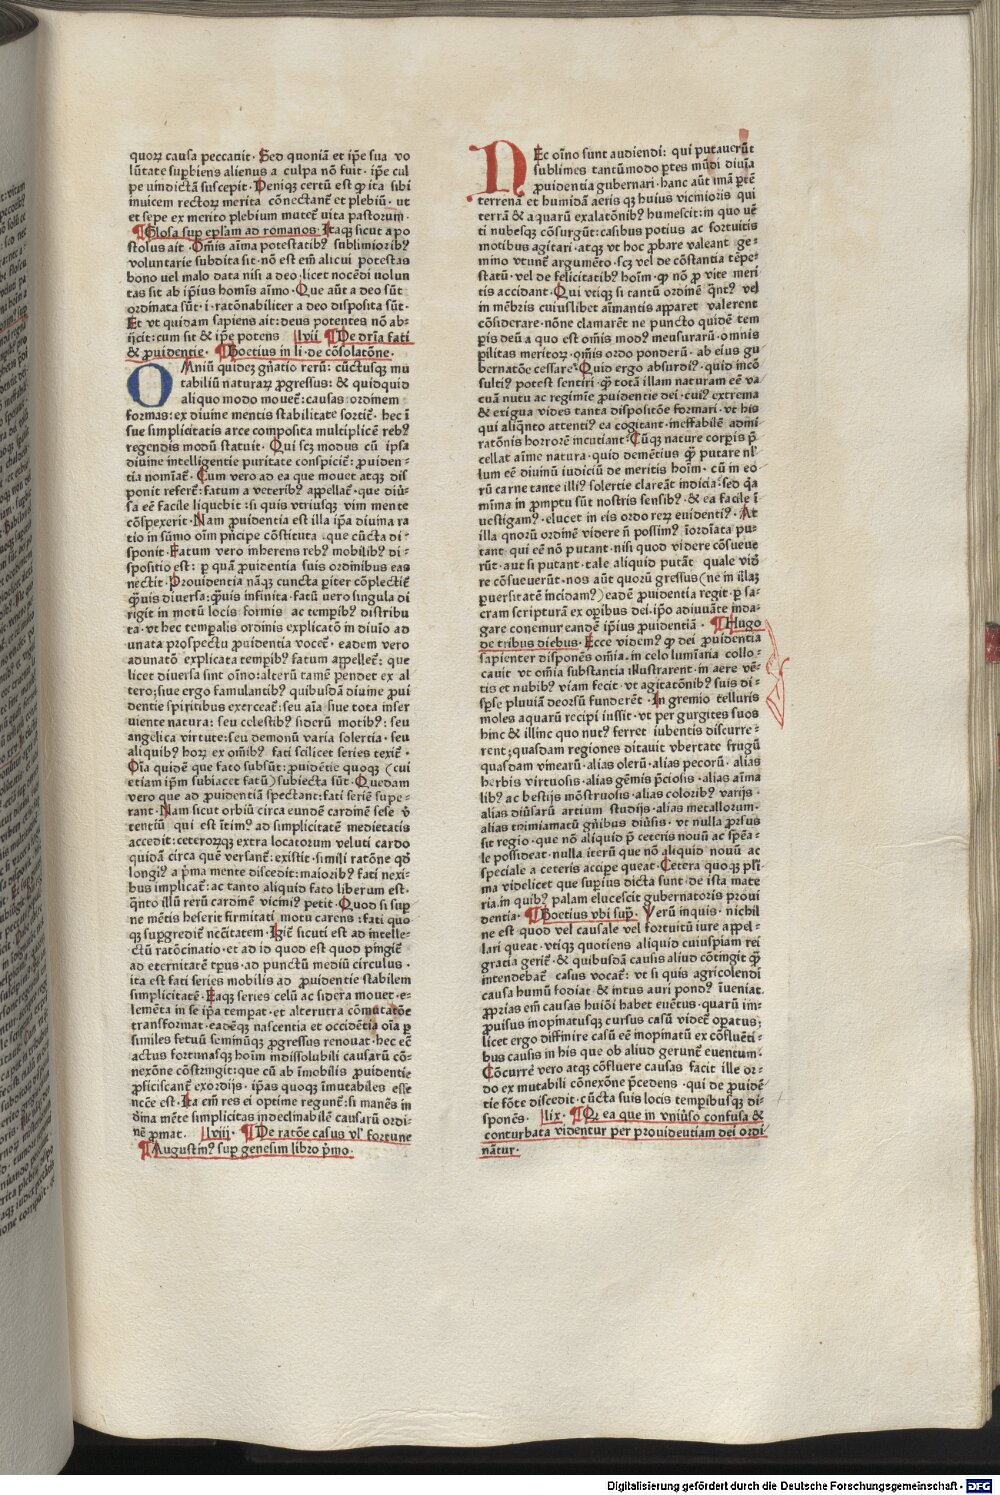 quorꝝ causa peccauit· Sed quoniā et ip̄e sua vo
lūtate supbiens alienus a culpa nō fuit· ip̄e cul
pe vindictā suscepit· Deniqꝫ certū est ꝙ ita sibi
inuicem rectorꝝ merita cōnectant̄ et plebiū· ut
et sepe ex merito plebium mutet̄ vita pastorum·
¶Glosa sup ep̄lam ad romanos· Itaqꝫ sicut apo
stolus ait· Om̄is aīma potestatibꝰ sublimioribꝰ
voluntarie subdita sit· nō est em̄ alicui potestas
bono uel malo data nisi a deo· licet nocēdi uolun
tas sit ab ip̄ius homīs aīmo· Que aūt a deo sūt
ordinata sūt· i·ratōnabiliter a deo disposita sūt·
Et vt quidam sapiens ait: deus potentes nō ab-
ijcit: cum sit & ip̄e potens lvii ¶De dr̄ia fati
& ꝓuidentie· ¶Boetius in li· de cōsolatōne·
OMniū quideꝫ gn̄atio rerū: cūctusqꝫ mu
tabiliū naturaꝝ ꝓgressus: & quidquid
aliquo modo mouet̄: causas: ordinem
formas: ex diuine mentis stabilitate sortit̄· hec ī
sue simplicitatis arce composita multiplicē rebꝰ
regendis modū statuit· Qui scꝫ modus cū ipsa
diuine intelligentie puritate conspicit̄: ꝓuiden-
tia nomīat̄· Cum vero ad ea que mouet atqꝫ dis
ponit refert̄: fatum a veteribꝰ appellat̄· que diū-
sa eē facile liquebit: si quis vtriusqꝫ vim mente
cōspexerit· Nam ꝓuidentia est illa ip̄a diuina ra
tio in sūmo oīm pn̄cipe cōstituta· que cūcta di-
sponit· Fatum vero inherens rebꝰ mobilibꝰ di-
spositio est: ꝑ quā ꝓuidentia suis ordinibus eas
nectit· Prouidentia nāqꝫ cuncta ꝑiter cōplectit̄
ꝙ̄uis diuersa: ꝙ̄uis infinita· fatū vero singula di
rigit in motū locis formis ac tempibꝰ distribu
ta· vt hec tempalis ordinis explicatō in diuīo ad
unata prospectu ꝓuidentia vocet̄· eadem vero
adunatō explicata tempibꝰ fatum appellet̄: que
licet diuersa sint oīno: alterū tamē pendet ex al
tero; siue ergo famulantibꝰ quibusdā diuine ꝓui
dentie spiritibus exerceat̄: seu aīa siue tota inser
uiente natura: seu celestibꝰ siderū motibꝰ: seu
angelica virtute: seu demonū varia solertia· seu
aliquibꝰ horꝝ ex om̄ibꝰ fati scilicet series texit̄·
Oīa quidē que fato subsūt: ꝓuidētie quoqꝫ (cui
etiam ip̄m subiacet fatū) subiecta sūt· Quedam
vero que ad ꝓuidentiā spectant: fati seriē supe-
rant· Nam sicut orbiū circa eundē cardinē sese v̄
tentiū qui est ītimꝰ ad simplicitatē medietatis
accedit: ceterorꝝqꝫ extra locatorum veluti cardo
quidā circa quē versant̄: existit· simili ratōne qd̄
longiꝰ a p̄ma mente discedit: maioribꝰ fati nexi-
bus implicat̄: ac tanto aliquid fato liberum est·
q̄nto illū rerū cardinē vicinꝰ petit· Quod si sup
ne mētis heserit firmitati motu carens: fati quo
qꝫ supgredit̄ nc̄citatem· Igit̄ sicuti est ad intelle-
ctū ratōcinatio· et ad id quod est quod pīngit̄
ad eternitatē tp̄us· ad punctū mediū circulus·
ita est fati series mobilis ad ꝓuidentie stabilem
simplicitatē· Eaqꝫ series celū ac sidera mouet· e-
lemēta in se ip̄a tempat· et alterutra cōmutatōe
transformat· eadēqꝫ nascentia et occidētia oīa ꝑ
similes fetuū seminūqꝫ ꝓgressus renouat· hec eē
actus fortunasqꝫ hoīm indissolubili causarū cō-
nexōne cōstringit: que cū ab īmobilis ꝓuidentie
ꝓficiscant̄ exordijs· ip̄as quoqꝫ īmutabiles esse
ncc̄e est· Ita em̄ res ei optime regunt̄: si manēs in
diuina mēte simplicitas indeclinabilē causarū ordi-
nē ꝓmat· lviii· ¶De ratōe casus vlꝰ fortune
¶Augustinꝰ sup genesim libro p̄mo·
NEc oīno sunt audiendi: qui putauerūt
sublimes tantūmodo ꝑtes mūdi diuīa
ꝓuidentia gubernari· hanc aūt imā ꝑtē
terrenā et humidā aeris qꝫ huius vicinioris qui
terrā & aquarū exalatōnibꝰ humescit: in quo uē
ti nubesqꝫ cōsurgūt: casibus potius ac fortuitis
motibus agitari· atqꝫ vt hoc ꝓbare valeant ge-
mino vtunt̄ argumēto· scꝫ vel de cōstantia tēpe-
statū· vel de felicitatibꝰ hoīm· ꝙ nō ꝓ vite meri
tis accidant· Qui vtiqꝫ si tantū ordinē q̄ntꝰ vel
in mēbris cuiuslibet aīmantis apparet valerent
cōsiderare· nōne clamarēt ne puncto quidē tem
pis deū a quo est om̄is modꝰ mensurarū· omnis
ꝑilitas meritorꝝ· om̄is ordo ponderū· ab eius gu
bernatōe cessare? Quid ergo absurdiꝰ· quid incō
sultiꝰ potest sentiri· ꝙ̄ totā illam naturam eē va
cuā nutu ac regimīe ꝓuidentie dei· cuiꝰ extrema
& exigua vides tanta dispositōe formari· vt his
qui aliqn̄to attentiꝰ ea cogitant· ineffabilē admi
ratōnis horrorē incutiant? Cūqꝫ nature corpis p̄
cellat aīme natura· quid demētius ꝙ̄ putare nł
lum eē diuinū iudiciū de meritis hoīm· cū in eo
rū carne tante illiꝰ solertie clareāt indicia: sed q̄a
mīma in p̄mptu sūt nostris sensibꝰ & ea facile ī
uestigamꝰ· elucet in eis ordo rerꝝ euidentiꝰ· At
illa quorū ordinē videre n̄ possimꝰ īordīata pu-
tant qui eē nō putant· nisi quod videre cōsueue
rūt· aut si putant· tale aliquid putāt quale videre
re cōsueuerūt· nos aūt quorū gressus (ne in illaꝫ
ꝑuersitatē incidamꝰ) eadē ꝓuidentia regit· ꝑ sa-
cram scripturā ex opibus dei· ip̄o adiuuāte inda-
gare conemur eandē ip̄ius ꝓuidentiā· ¶Hugo
de tribus diebus· Ecce videmꝰ ꝙ dei ꝓuidentia
sapienter disponēs om̄ia· in celo lumīaria collo-
cauit vt om̄ia substantia illustrarent· in aere vē-
tis et nubibꝰ viam fecit· vt agitatōnibꝰ suis di-
sp̄se pluuiā deorsū funderēt· In gremio telluris
moles aquarū recipi iussit· vt per gurgites suos
hinc & illinc quo nutꝰ ferret iubentis discurre-
rent; quasdam regiones ditauit vbertate frugū
quasdam vinearū· alias olerū· alias pecorū· alias
herbis virtuosis· alias gēmis p̄ciosis· alias aīma
libꝰ ac bestijs mōstruosis· alias coloribꝰ varijs·
alias diūsarū artium studijs· alias metallorum·
alias tnimiamatū gn̄ibus diūsis· vt nulla ꝓrsus
sit regio· que nō aliquid p̄ ceteris nouū ac spēa-
le possideat· nulla iterū que nō aliquid nouū ac
speciale a ceteris accipe queat· Cetera quoqꝫ plꝰi
ma videlicet que supius dicta sunt· de ista mate
ria· in quibꝰ palam elucescit gubernatoris proui
dentia· ¶Boetius vbi sup̄· Verū inquis· nichil
ne est quod vel causale vel fortuitū iure appel-
lari queat· vtiqꝫ quotiens aliquid cuiuspiam rei
gratia gerit̄· & quibusdā causis aliud cōtingit ꝙ̄
intendebat̄ casus vocat̄· vt si quis agricolendi
causa humū fodiat· & intus auri pondꝰ īueniat·
ꝓprias em̄ causas huiōi habet euētus· quarū im-
ꝓuisus inopinatusqꝫ cursus casū videt̄ opatus;
licet ergo diffinire casū eē inopinatū ex cōfluēti-
bus causis in his que ob aliud gerunt̄ euentum·
Cōcurrē vero atqꝫ cōfluere causas facit ille or-
do ex mutabili cōnexōne p̄cedens· qui de ꝓuidē
tie fōte discedit· cūcta suis locis tempibusqꝫ di-
sponēs· lix· ¶Qꝫ ea que in vniūso confusa &
conturbata videntur per prouidentiam dei ordi
nātur·
Digitalisierung gefördert durch die Deutsche Forschungsgemeinschaft - DFG